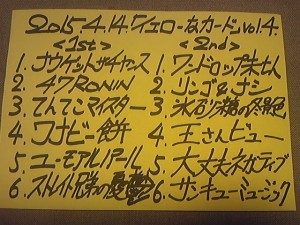 2015.4.14.「イエローなカード」vol.4.
<1st>
1. ナウゲットザチャンス
2. 47RONIN
3. てんてこマイスター
4. ワナビー餅
5. ユーモアルパール
6. ストレイト兄弟の憂鬱
<2nd>
1. ワンドロップ
2. リンゴ&ナシ
3. 氷砂糖の冬景色
4. 王さんビュー
5. 大丈夫ネガティブ
6. サンキューミュージック